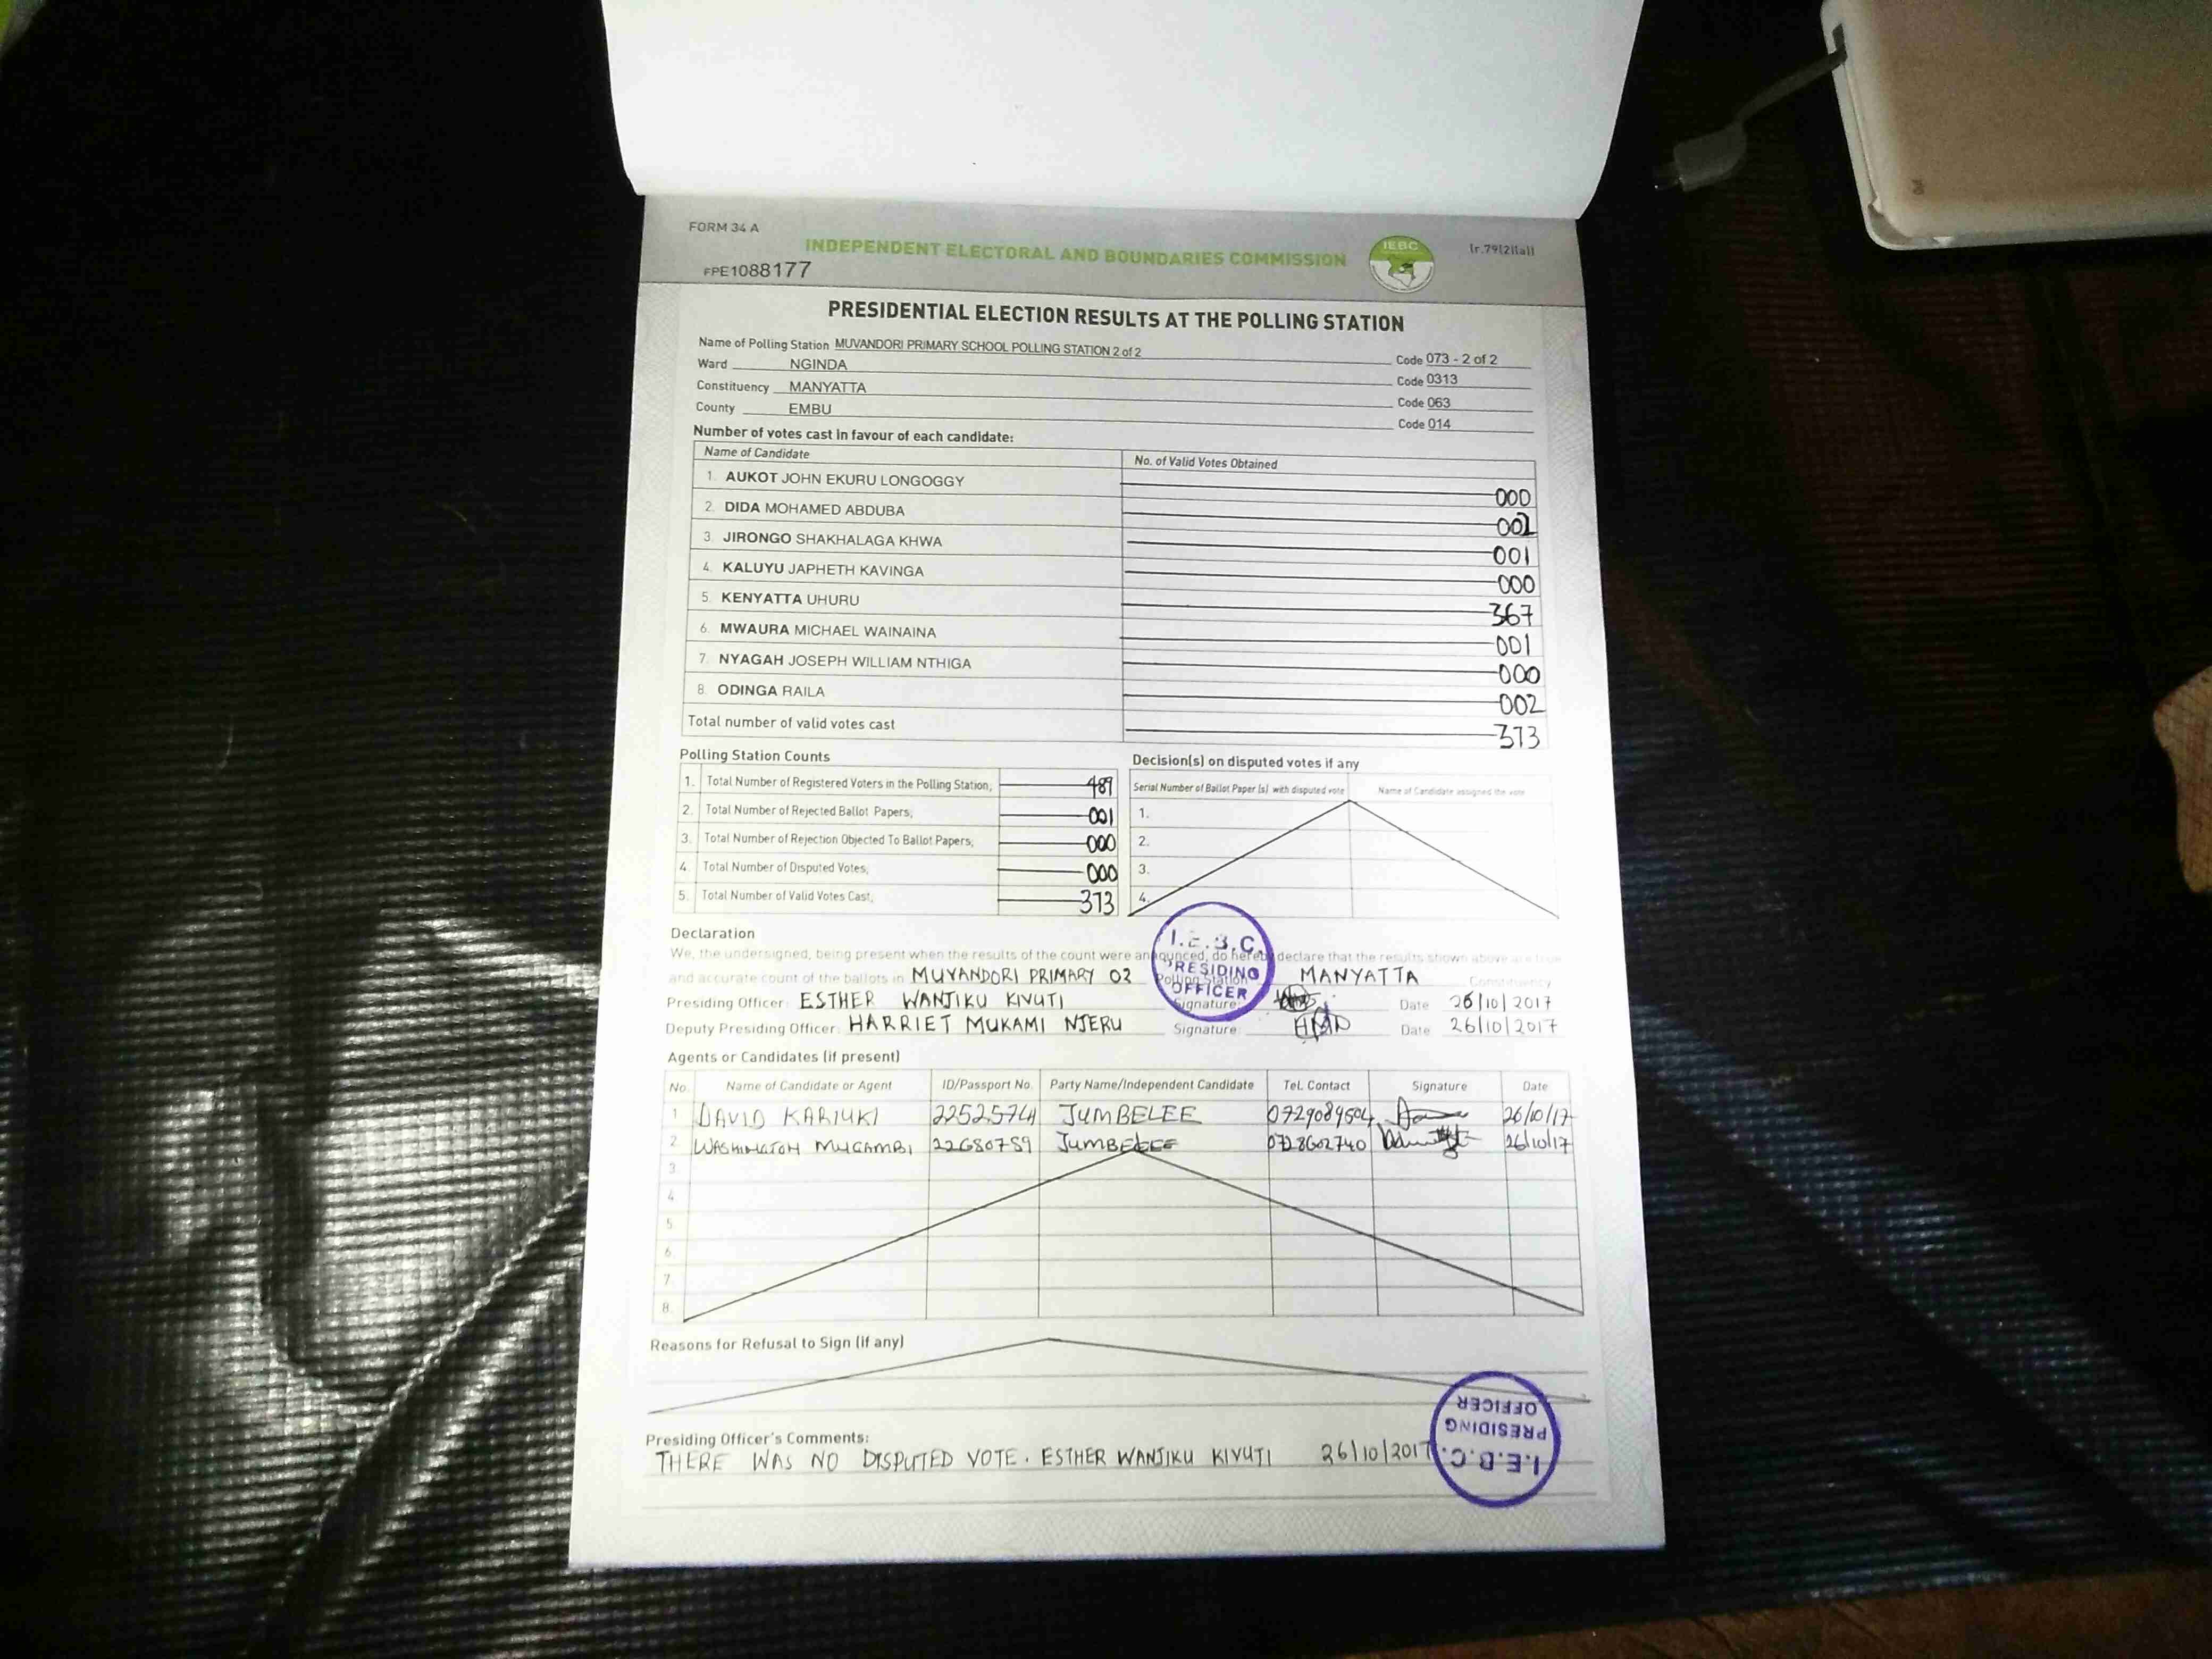 FORM 34 A
INDEPENDENT ELECTORAL AND BOUNDARIES COMMISSION
IEBC
FPE1088177
PRESIDENTIAL ELECTION RESULTS AT THE POLLING STATION
Name of Polling Station MUVANDORI PRIMARY SCHOOL POLLING STATION 2 of 2 Code 073 - 2 of 2
Ward NGINDA Code 0313
Constituency MANYATTA Code 063
County EMBU Code 014
Number of votes cast in favour of each candidate:
Name of Candidate No. of Valid Votes Obtained
1. AUKOT JOHN EKURU LONGOGGY 000
2. DIDA MOHAMED ABDUBA 002
3. JIRONGO SHAKHALAGA KHWA 001
4. KALUYU JAPHETH KAVINGA 000
5. KENYATTA UHURU 367
6. MWAURA MICHAEL WAINAINA 001
7. NYAGAH JOSEPH WILLIAM NTHIGA 000
8. ODINGA RAILA 002
Total number of valid votes cast 373
Polling Station Counts
1. Total Number of Registered Voters in the Polling Station, 489
2. Total Number of Rejected Ballot Papers, 001
3. Total Number of Rejection Objected To Ballot Papers, 000
4. Total Number of Disputed Votes, 000
5. Total Number of Valid Votes Cast, 373
Decision(s) on disputed votes if any
Serial Number of Ballot Paper (s) with disputed vote Name of Candidate assigned the vote
1.
2.
3.
4.
Declaration
We, the undersigned, being present when the results of the count were announced, do hereby declare that the results shown above are true
and accurate count of the ballots in MUVANDORI PRIMARY 02 Polling Station MANYATTA Constituency
Presiding Officer: ESTHER WANJIKU KIVUTI Signature: Date 26/10/2017
Deputy Presiding Officer: HARRIET MUKAMI NJERU Signature: Date 26/10/2017
I.E.B.C.
PRESIDING
OFFICER
Agents or Candidates (if present)
No. Name of Candidate or Agent ID/Passport No. Party Name/Independent Candidate Tel. Contact Signature Date
1 DAVID KARIUKI 2252574 JUMBELEE 0729089504 26/10/17
2 WASHINGTON MUGAMBI 22680759 JUMBELEE 0728602740 26/10/17
3
4
5.
6.
7.
8.
Reasons for Refusal to Sign (if any)
Presiding Officer's Comments:
THERE WAS NO DISPUTED VOTE. ESTHER WANJIKU KIVUTI 26/10/2017
I.E.B.C.
PRESIDING
OFFICER